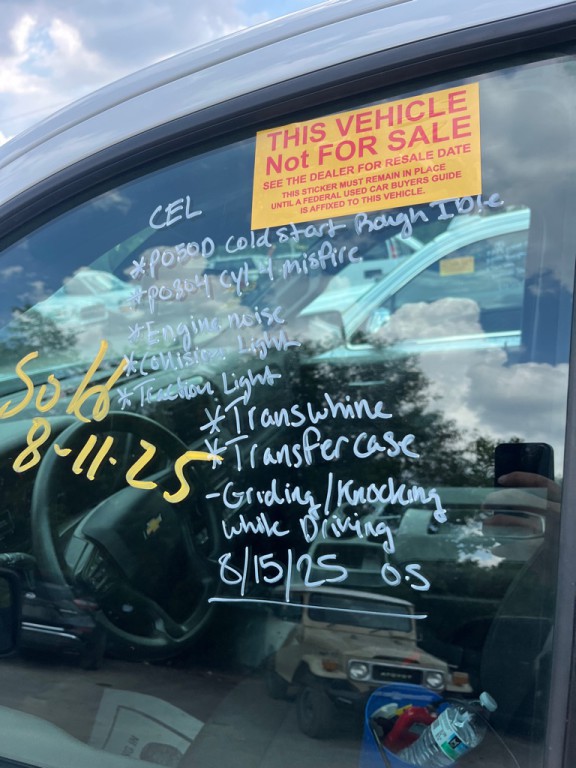 THIS VEHICLE
Not FOR SALE
SEE THE DEALER FOR RESALE DATE
THIS STICKER MUST REMAIN IN PLACE
UNTIL A FEDERAL USED CAR BUYERS GUIDE
IS AFFIXED TO THIS VEHICLE.
CEL
*P050D Cold Start Rough Idle
*P0304 Cyl 4 misfire
*Engine noise
*Collision Light
*Traction Light
Sold
8-11-25
*Trans whine
*Transfer case
-Griding/Knocking
while Driving
8/15/25 O.S